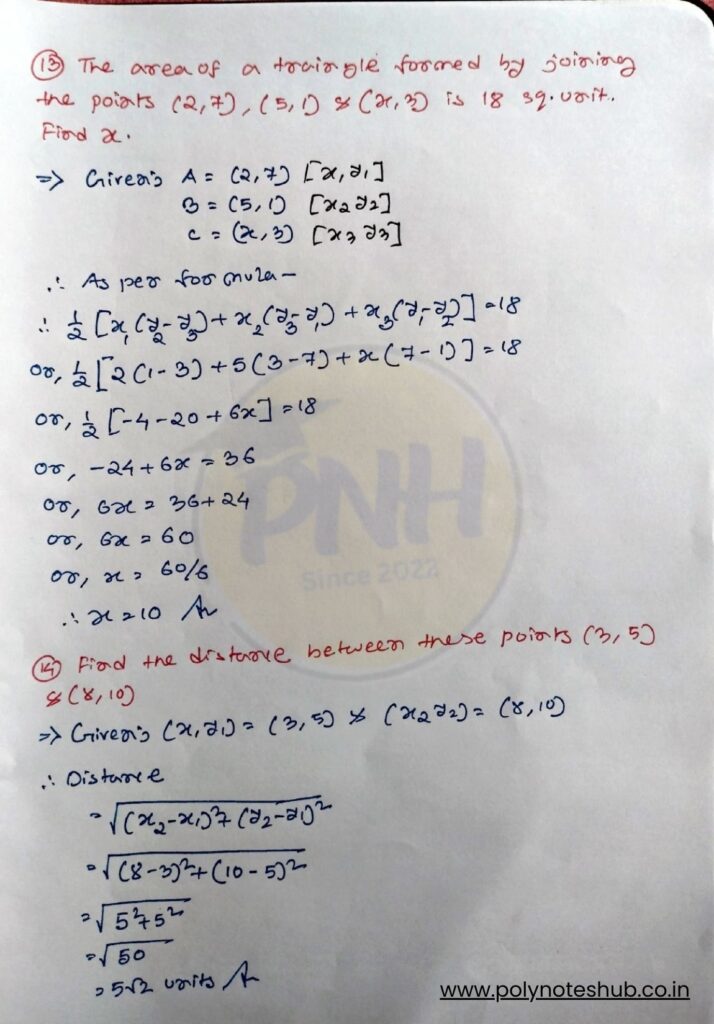 (13) The area of a traingle formed by joining
the points (2,7), (5,1) & (x,3) is 18 sq. unit.
Find x.
=> Given:- A = (2,7) [x₁ y₁]
B = (5,1) [x₂ y₂]
C = (x,3) [x₃ y₃]
∴ As per formula -
∴ ½ [x₁(y₂-y₃) + x₂(y₃-y₁) + x₃(y₁-y₂)] = 18
or, ½ [2(1-3) + 5(3-7) + x(7-1)] = 18
or, ½ [-4-20+6x] = 18
or, -24+6x = 36
or, 6x = 36+24
or, 6x = 60
or, x = 60/6
∴ x = 10 An
(14) Find the distance between these points (3,5)
& (8,10)
=> Given:- (x₁ y₁) = (3,5) & (x₂ y₂) = (8,10)
∴ Distance
= √(x₂-x₁)²+(y₂-y₁)²
= √(8-3)²+(10-5)²
= √5²+5²
= √50
= 5√2 units An
PNH
Since 2022
www.polynoteshub.co.in